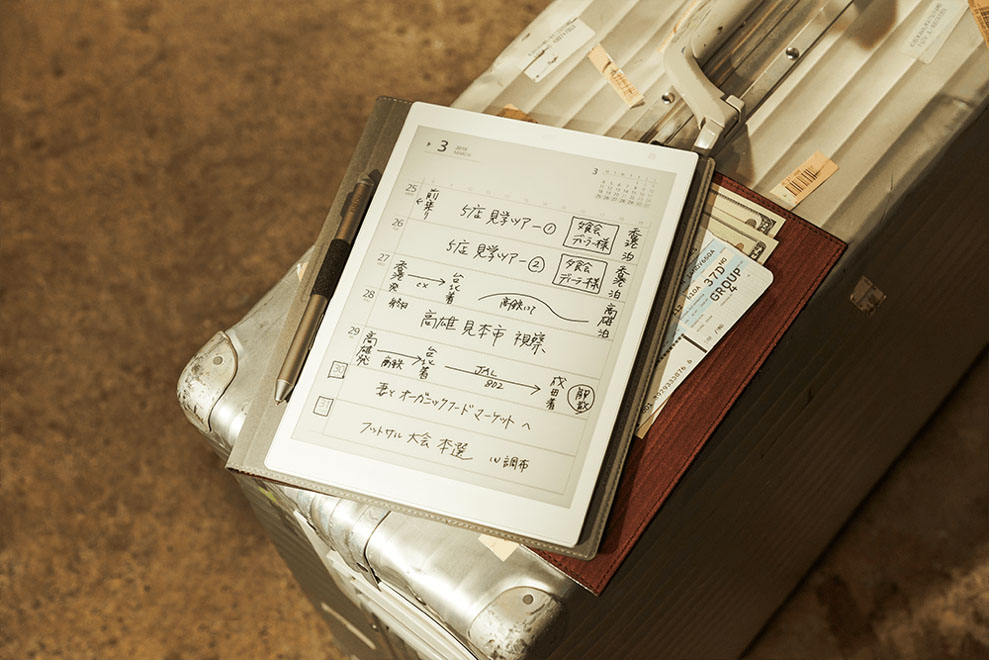 3
2019
MARCH
3
25
前乗り
5店 見学ツアー①
夕食会
ディーラー様
香港泊
26
5店 見学ツアー②
夕食会
ディーラー様
香港泊
27
香港発
CX
台北着
高鉄にて
高雄泊
28
終日
高雄 見本市 視察
29
高雄発
高鉄
台北着
JAL
802
成田着
解散
30
妻と オーガニックフードマーケット へ
31
フットサル 大会 本選 in 調布
37D
GROUP
4